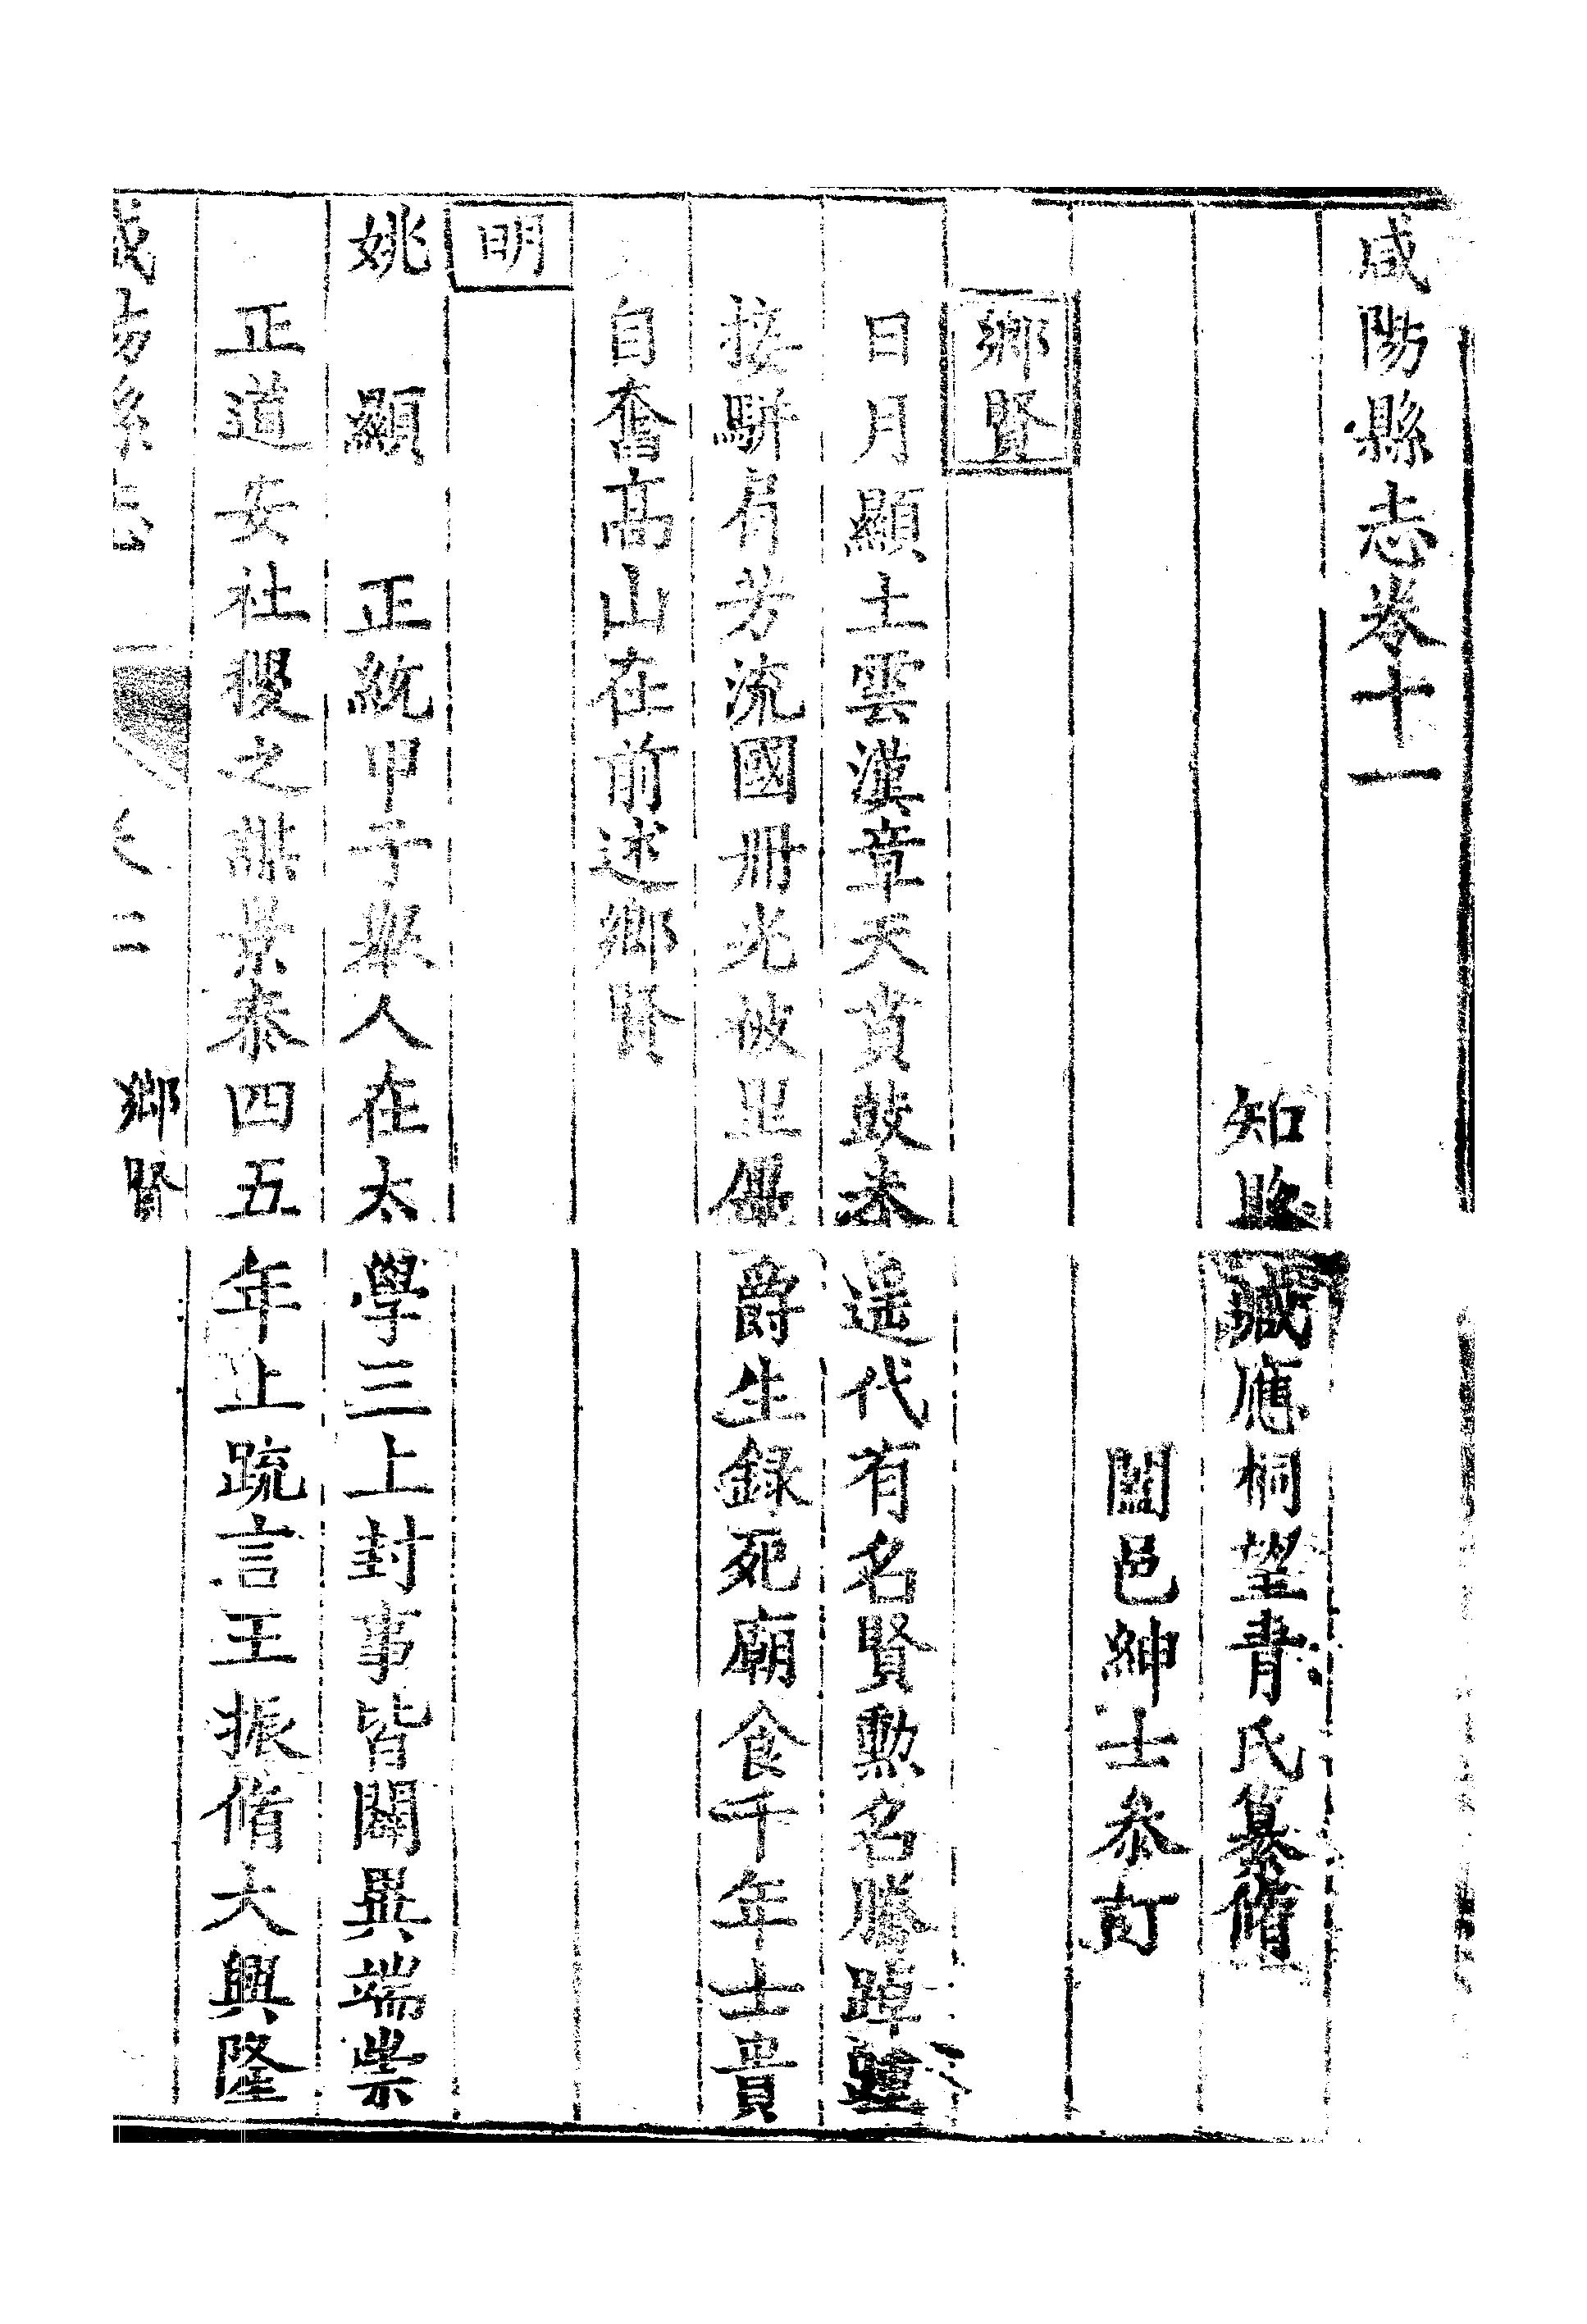 咸陽縣志卷十一
知縣臧應桐望青氏纂脩
闔邑紳士叅訂
鄉賢
日月顯土雲漢章天蕡鼓未遥代有名賢勲名勝踔踵
接駢肩芳流國冊光被里社爵生録死廟食千年士貴
自奮高山在前述鄉賢
明
姚顯正統甲子舉人在太學三上封事皆闢異端崇
正道安社稷之謀景泰四五年上疏言王振脩大興隆
咸陽縣志 卷 鄉賢